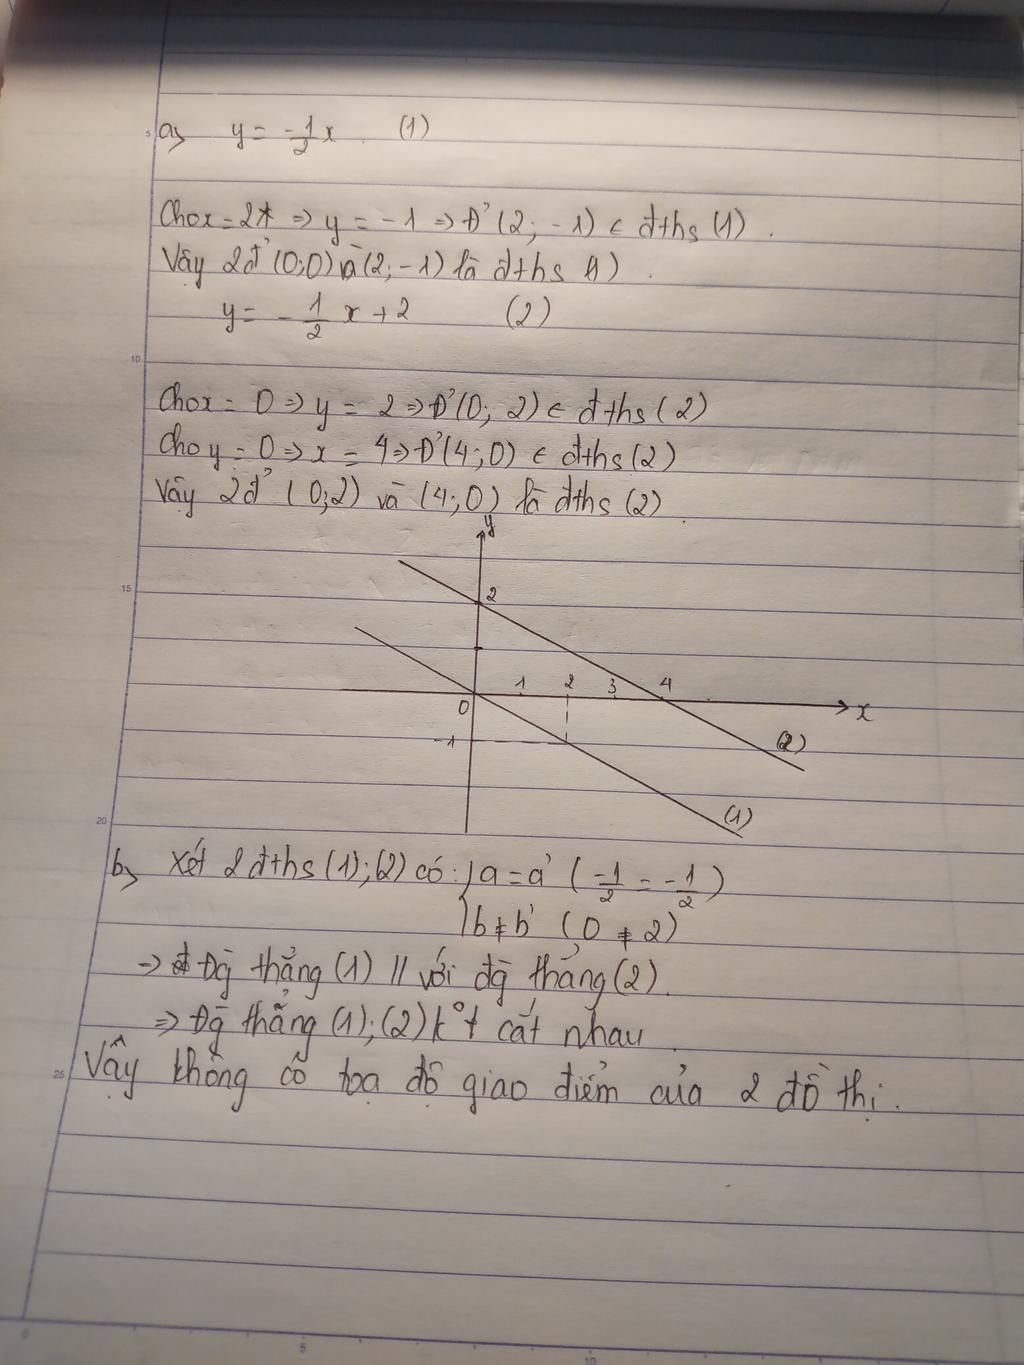 a, y = -1/2 x (1)
Cho x = 2 => y = -1 => Đ' (2; -1) ∈ đths (1).
Vậy 2đ' (0;0) và (2; -1) là đths (1).
y = - 1/2 x + 2 (2)
Cho x = 0 => y = 2 => Đ' (0; 2) ∈ đths (2)
Cho y = 0 => x = 4 => Đ' (4; 0) ∈ đths (2)
Vậy 2đ' (0;2) và (4;0) là đths (2)
y
2
1 2 3 4
0
x
-1
(2)
(1)
b, Xét 2 đths (1); (2) có: { a = a' ( -1/2 = -1/2 )
b ≠ b' (0 ≠ 2)
-> Đg thẳng (1) // với đg thẳng (2).
=> Đg thẳng (1); (2) k° cắt nhau.
Vậy không có tọa độ giao điểm của 2 đồ thị.
5
10
15
20
25
0
5
10